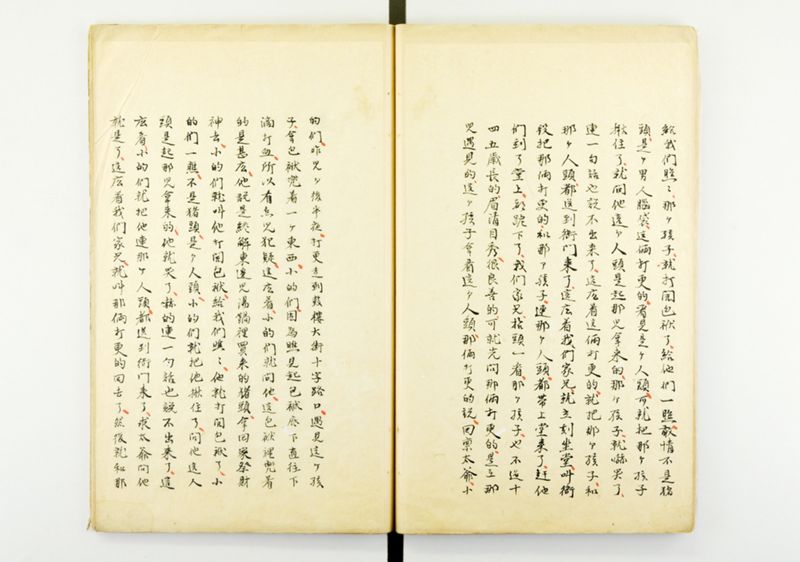 給我們瞧瞧、那ケ孩子、就打開包袱了、給他們一瞧、敢情不是猪
頭、是ケ男人腦袋、這倆打更的、看見是ケ人頭、可就把那ケ孩子
揪住了、就問他這ケ人頭是起那兒拿來的、那ケ孩子、就嚇哭了、
連一句話也說不出來了、這庅着這倆打更的、就把那ケ孩子、和
那ケ人頭都送到衙門來了、這庅着我們家兄、就立刻坐堂、叫衙
役把那倆打更的、和那ケ孩子、連那ケ人頭都帶上堂來了、赶他
們到了堂上、都跪下了、我們家兄抬頭一看那ケ孩子、也不過十
四五歲、長的眉清目秀、很良善的、可就先問那倆打更的、是上那
兒遇見的這ケ孩子、拿着這ケ人頭、那倆打更的說、回禀太爺、小
的們、昨兒ケ後半夜、打更走到鼓樓大街十字路口、遇見這ケ孩
子、拿包袱兜着一ケ東西、小的們、因為瞧見起包袱底下直往下
滴打血、所以有點兒犯疑、這庅着、小的們就問他、這包袱裡兜着
的是甚庅、他說是終觧東邊兒湯鍋裡買來的猪頭、拿回家祭財
神去、小的們、就叫他打開包袱給我們瞧瞧、他就打開包袱了、小
的們一瞧、不是猪頭、是ケ人頭、小的們、就把他揪住了、問他這人
頭是起那兒拿來的、他就哭了、嚇的連一句話也說不出來了、這
庅着小的們就把他連那ケ人頭、都送到衙門來了、求太爺問他
就是了、這庅着我們家兄、就叫那倆打更的回去了、然後就和那